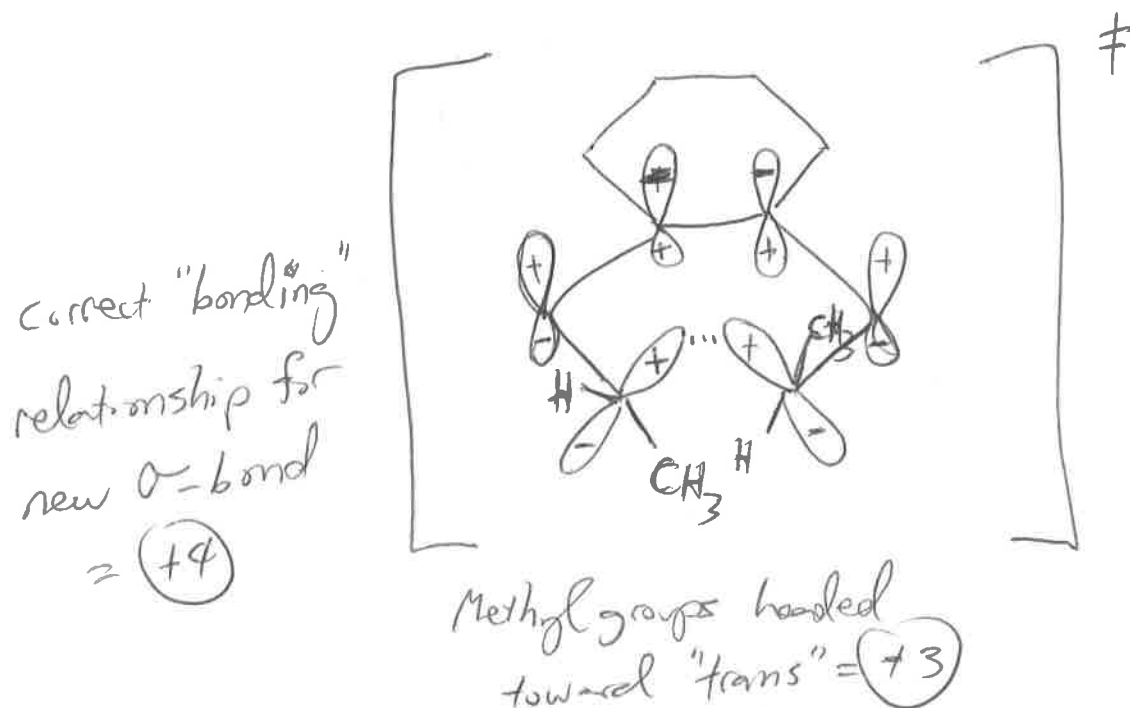 ‡
+ -
+ +
+ +
- -
correct "bonding"
relationship for
new σ-bond
= +4
+ ... +
CH3
H
- -
CH3 H
Methyl groups headed
toward "trans" = +3